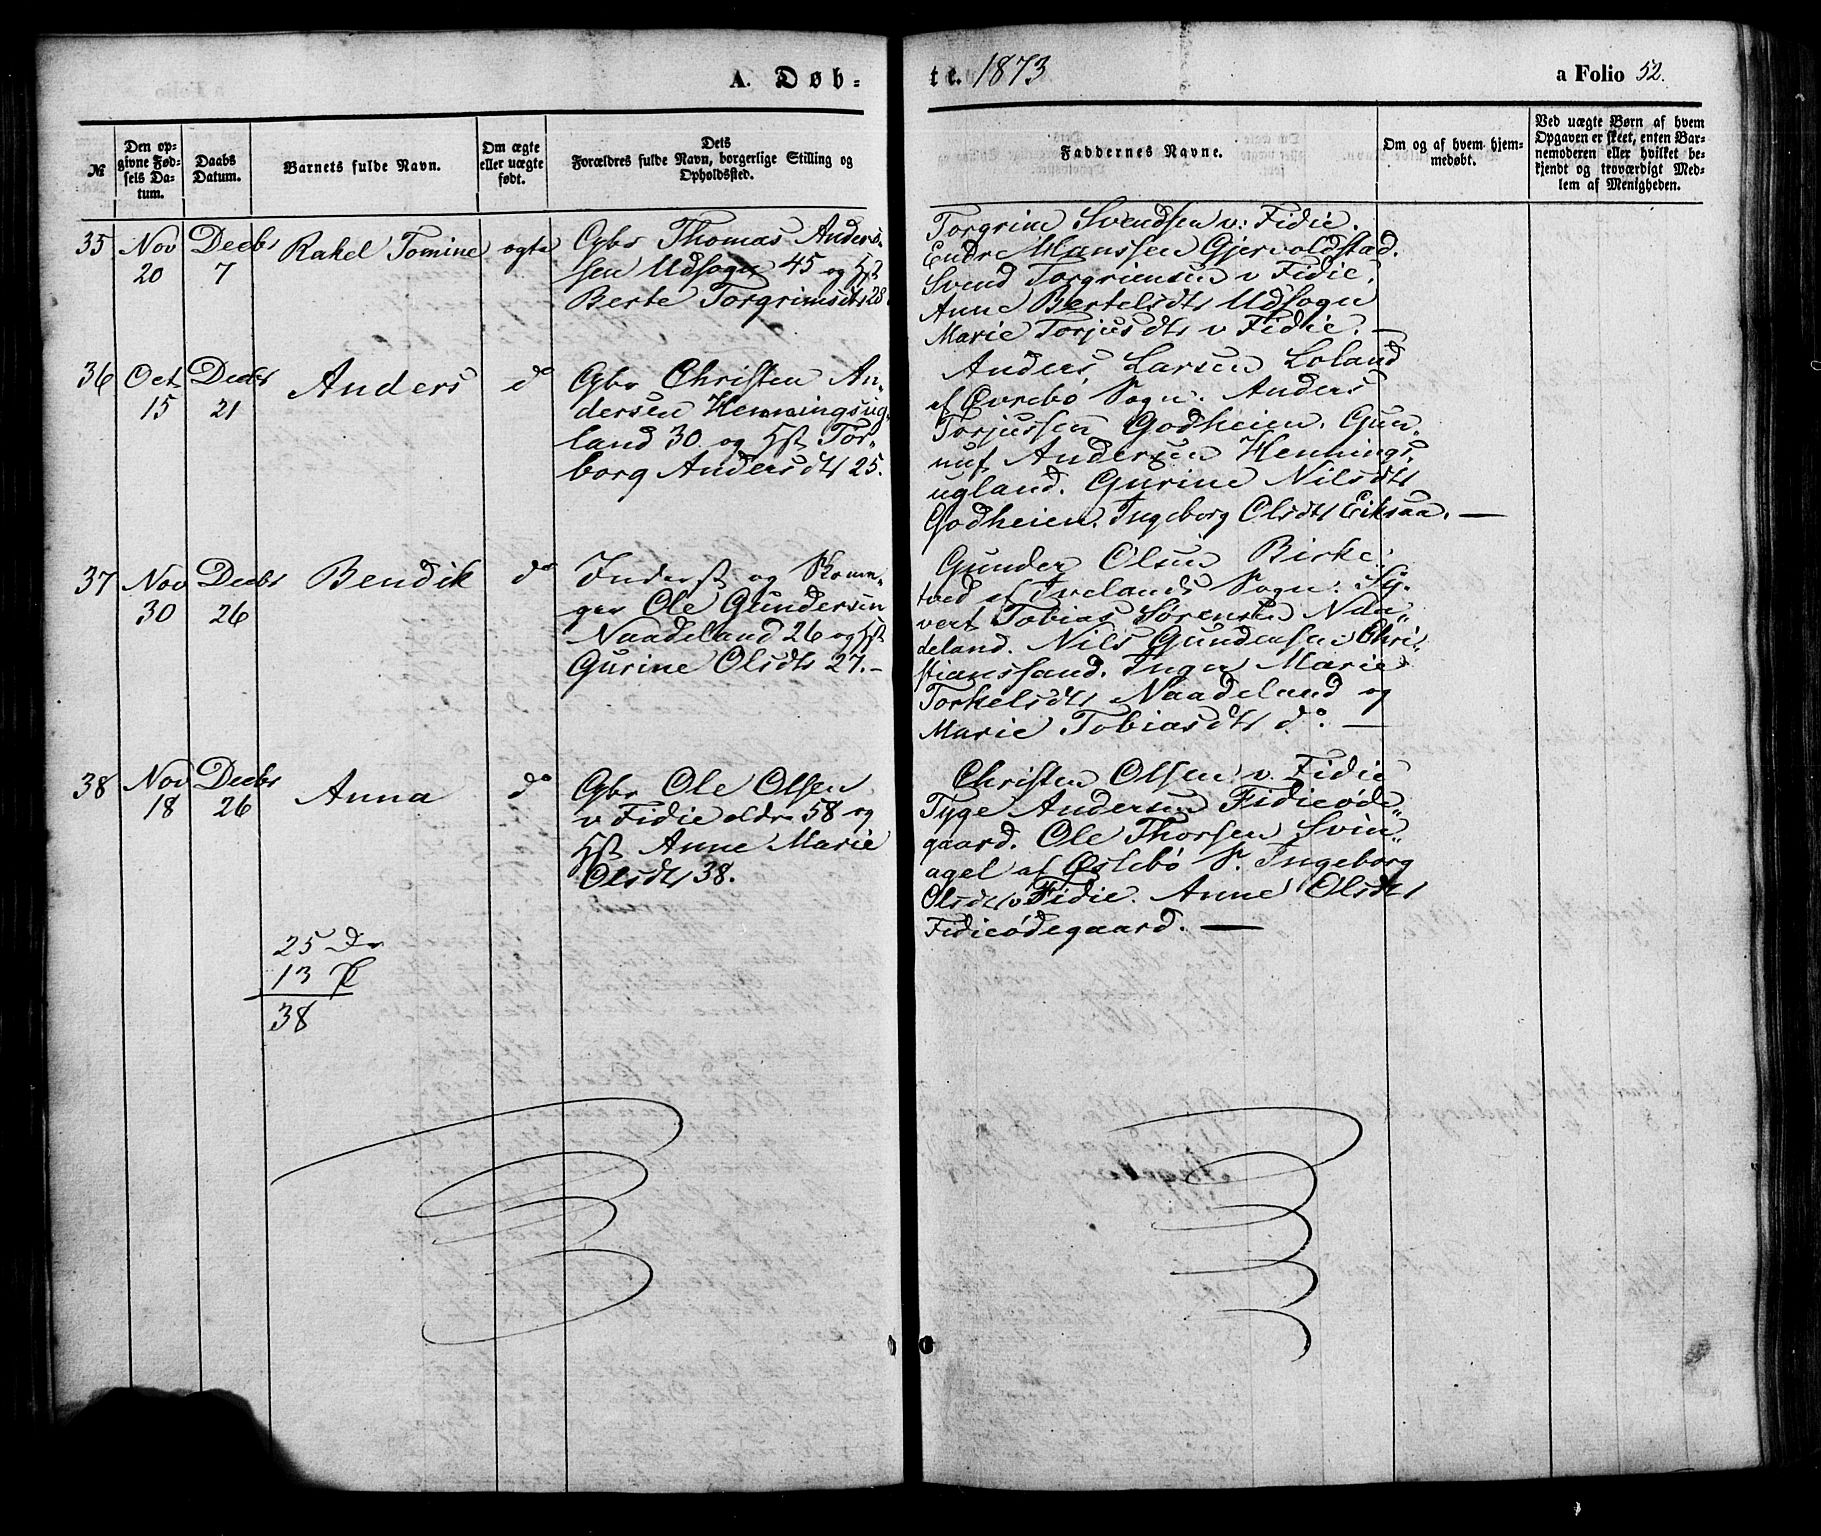 A. Døb-
te. 1873
a Folio 52.
№
Den op-
givne Fød-
sels Da-
tum.
Daabs
Datum.
Barnets fulde Navn.
Om ægte
eller uægte
født.
Dets
Forældres fulde Navn, borgerlige Stilling og
Opholdssted.
Faddernes Navne.
Om og af hvem hjem-
medøbt.
Ved uægte Børn af hvem
Opgaven er skeet, enten Bar-
nemoderen eller hvilket be-
kjendt og troværdigt Med-
lem af Menigheden.
35 Nov Decbr Rakel Tomine ogte
20 7
Gbr Thomas Anders-
sen Udsogn 45 og Hst
Berte Torgrimsdtr 28
Torgrim Svendsen v: Fidie.
Endre Hanssen Gjervoldstad.
Svend Torgrimsen v Fidie.
Anne Bertelsdtr Udsogn
Marie Torjusdtr v Fidie. —
36 Oct Decbr Anders do
15 21
Gbr Christen An-
dersen Henningsug-
land 30 og Hst Tor-
borg Andersdtr 25.
Anders Larsen Loland
af Øvrebø Sogn. Anders
Torjussen Godheien. Gun-
nuf Andersen Hennings-
ugland. Gurine Nilsdtr
Godheien. Ingeborg Olsdtr Eiksaa. —
37 Nov Decbr Bendik do
30 26
Inderst og Skoma-
ger Ole Gundersen
Naadeland 26 og Hst
Gurine Olsdtr 27. -
Gunder Olsen Birke-
tved af Ivelands Sogn: Sy-
vert Tobias Sørensen Naa-
deland. Nils Gundersen Chri-
stianssand. Inger Marie
Torkelsdtr Naadeland og
Marie Tobiasdtr do. —
38 Nov Decbr Anna do
18 26
Gbr Ole Olsen
v Fidie eldr 58 og
Hst Anne Marie
Olsdtr 38.
Christen Olsen v. Fidie
Tyge Andersen Fidieøde-
gaard. Ole Thorsen Svin-
agel af Øslebø S. Ingeborg
Olsdtr v Fidie. Anne Olsdtr
Fidieødegaard. —
25 Dr
13 P
38